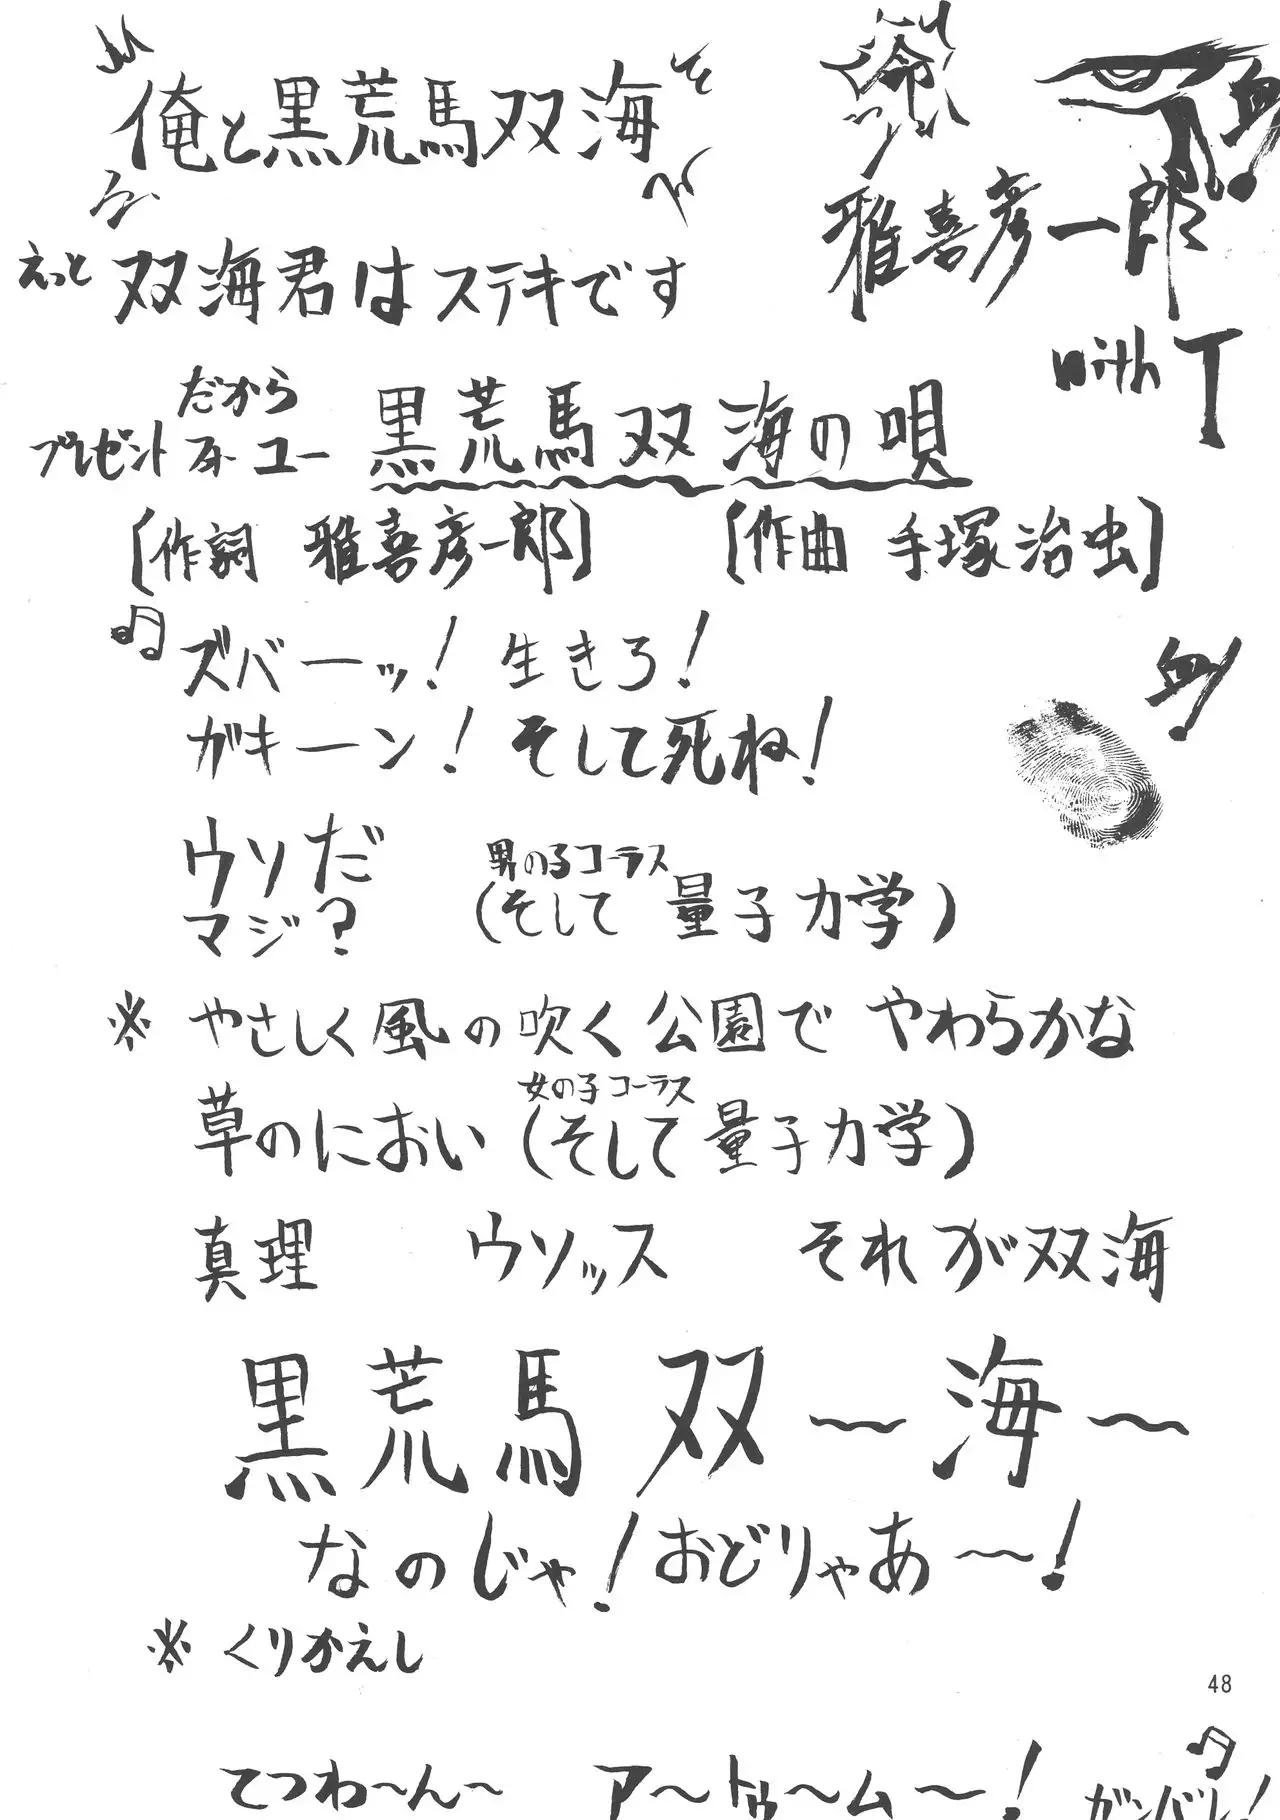 俺と黒荒馬双海
命
血
雅喜彦一郎
with T
えっと 双海君はステキです
だから
プレゼント フォー ユー 黒荒馬双海の唄
[作詞 雅喜彦一郎] [作曲 手塚治虫]
ズバーッ! 生きろ!
ガキーン! そして死ね!
血
ウソだ
マジ?
男の子コーラス
(そして 量子力学)
※ やさしく風の吹く公園で やわらかな
女の子コーラス
草のにおい (そして 量子力学)
真理 ウソッス それが双海
黒荒馬双〜海〜
なのじゃ! おどりゃあ〜!
※ くりかえし
48
てつわ〜ん〜 ア〜トゥ〜ム〜! ガンバレ!